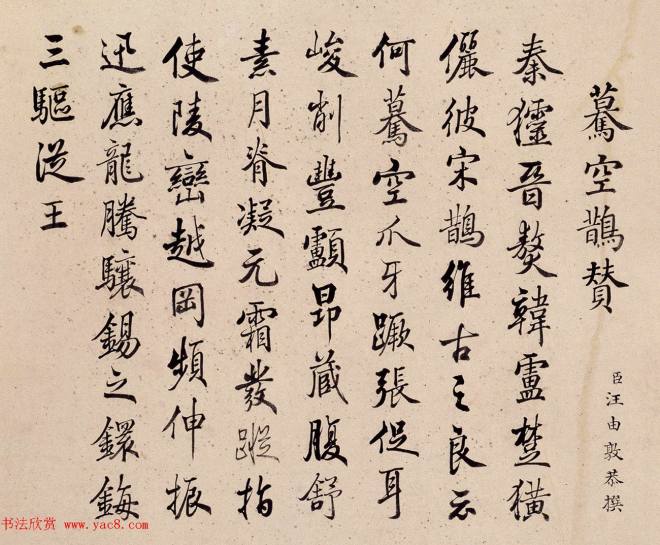 驀空鵲贊
臣汪由敦恭撰
秦晉獒韓盧楚獚
儷彼宋鵲維古之良云
何驀空爪牙蹶張促耳
峻削豐顱昂藏腹舒
素月脊凝元霜發蹤指
使陵巒越岡頻伸振
迅應龍騰驤錫之鐶鋂
三驅從王
书法欣赏 www.yac8.com